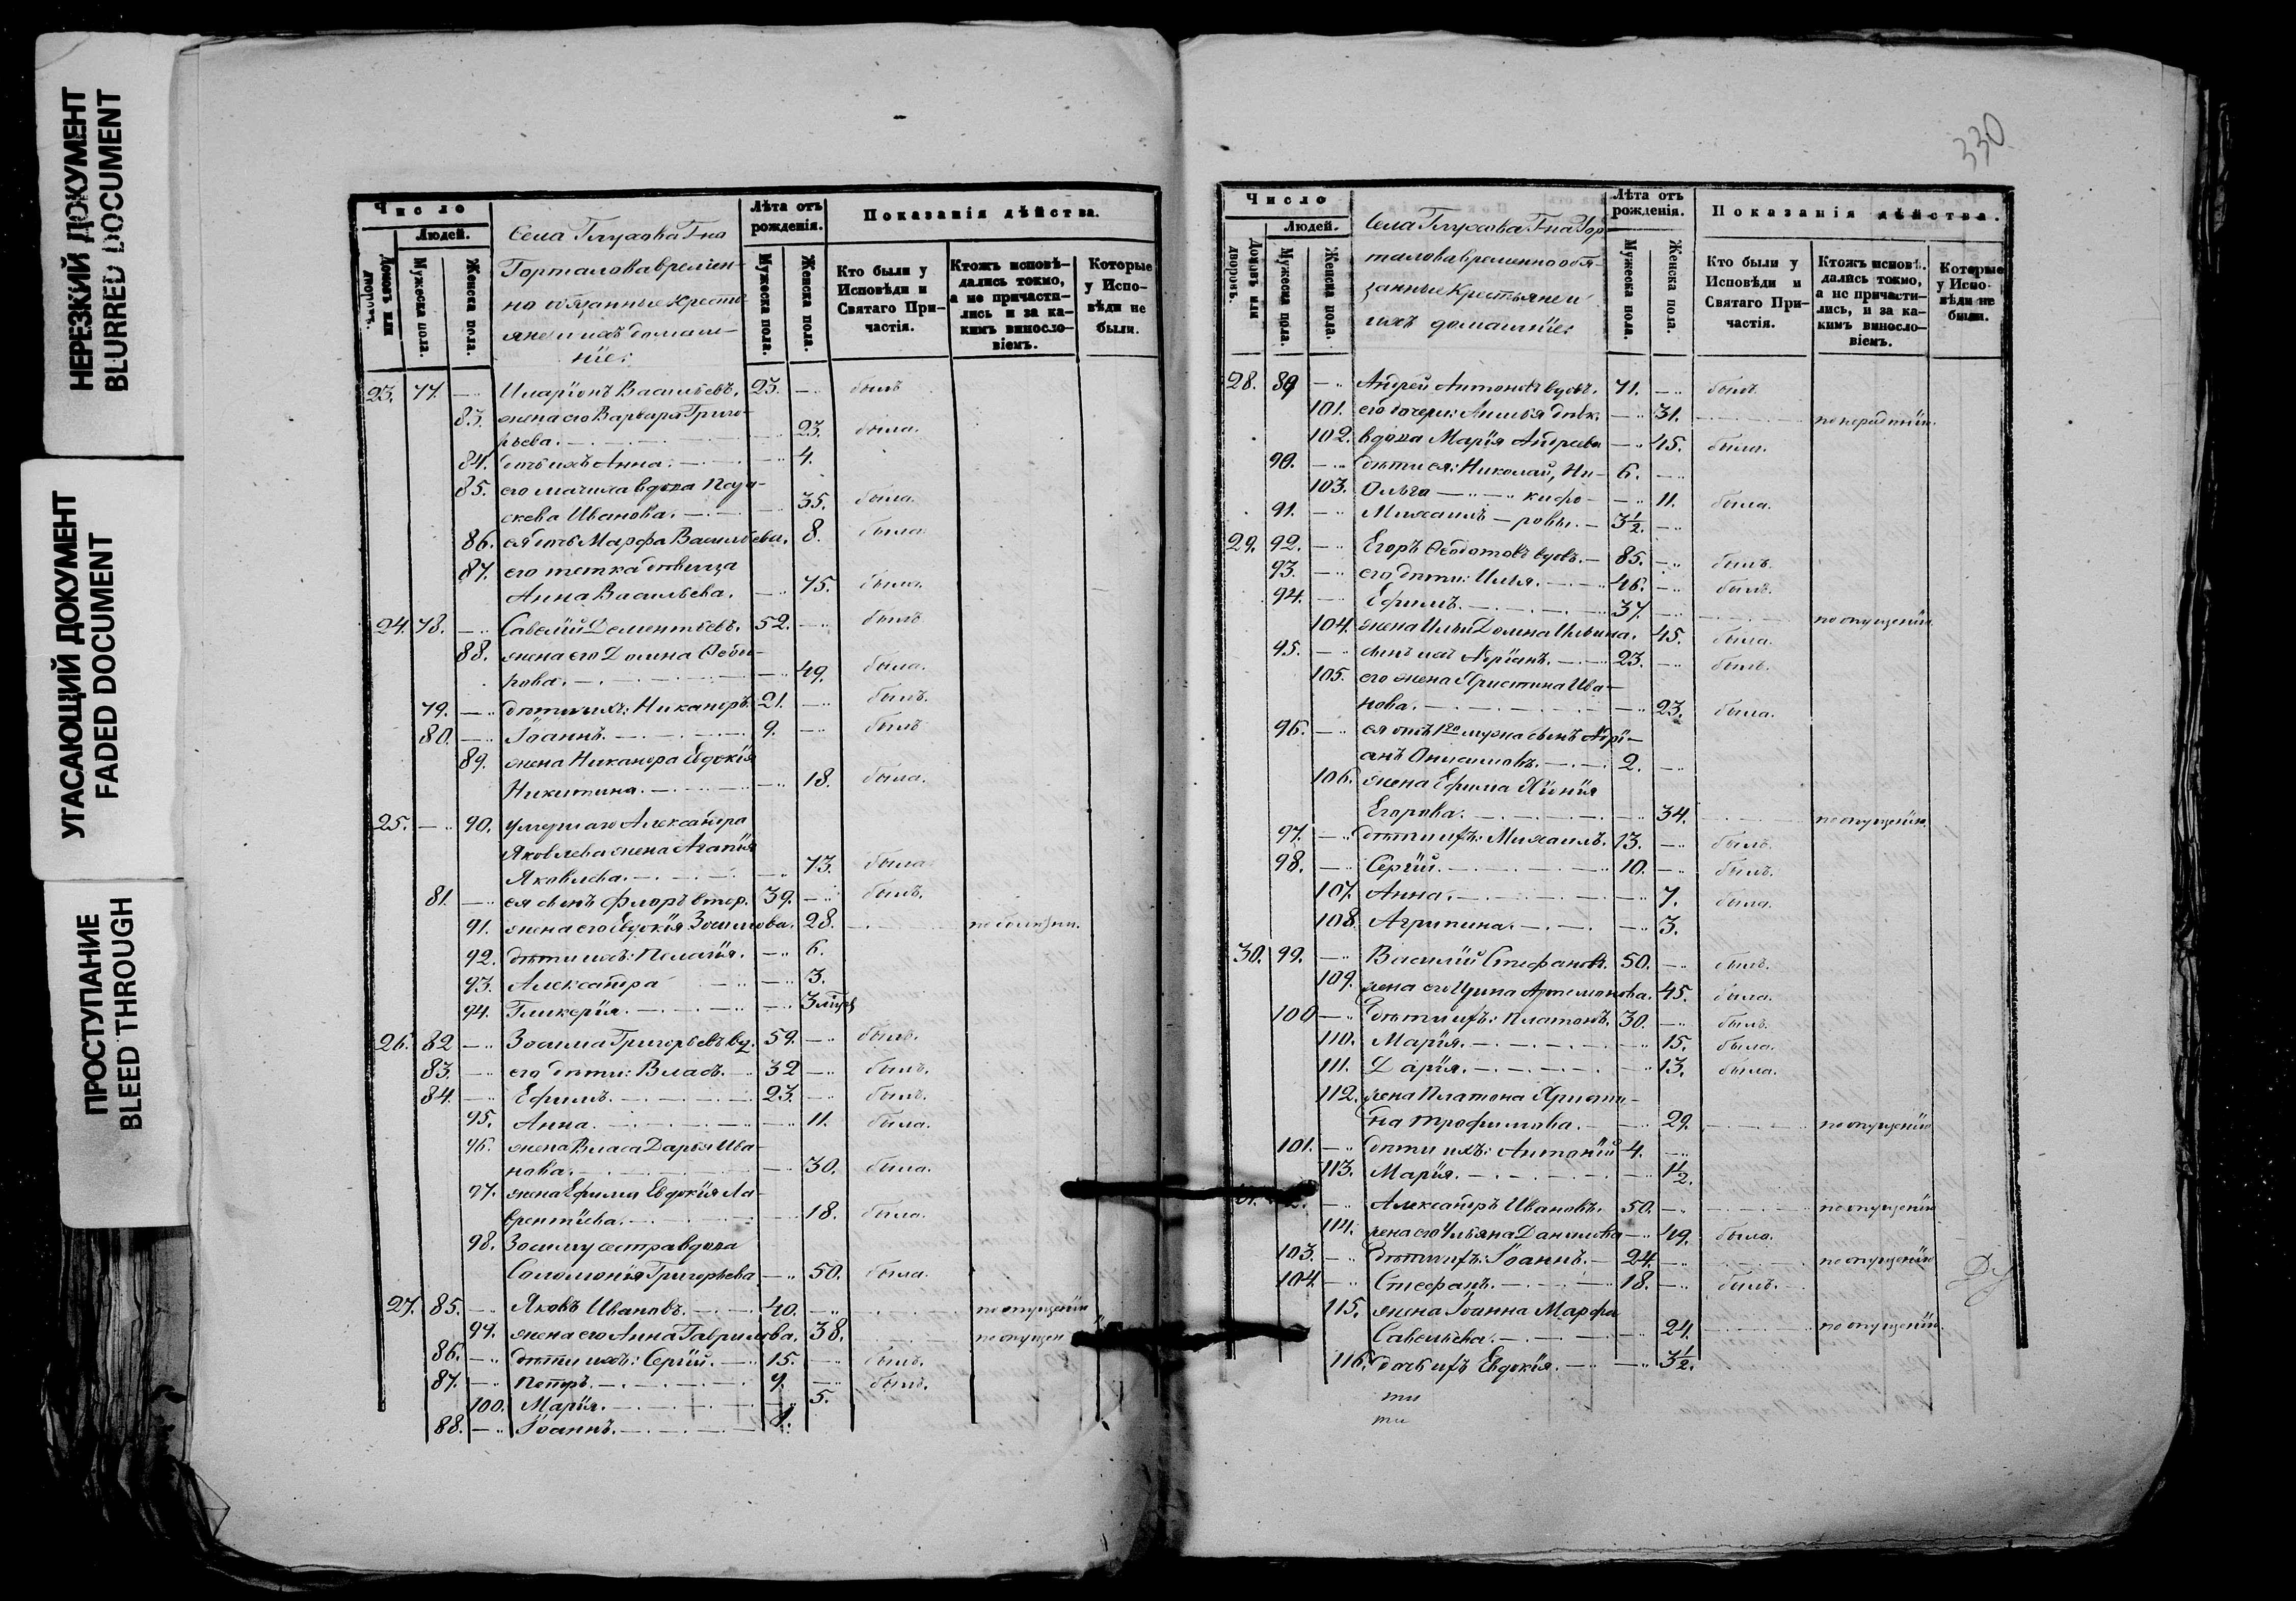 НЕРЕЗКИЙ ДОКУМЕНТ
BLURRED DOCUMENT
УГАСАЮЩИЙ ДОКУМЕНТ
FADED DOCUMENT
ПРОСТУПАНИЕ
BLEED THROUGH
Число
Людей.
Домовъ или дворовъ.
Мужеска пола.
Женска пола.
Села Глухова Гна
Горталова времен-
но обязанные кресть-
яне и ихъ домаш-
ніе:
Лѣта отъ рожденія.
Мужеска пола.
Женска пола.
Показанія дѣйства.
Кто были у Исповѣди и Святаго При-частія.
Ктожъ исповѣ-дались токмо, а не причасти-лись и за ка-кимъ винсло-віемъ.
Которые у Испо-вѣди не были.
23. 77. — Иларіонъ Васильевъ. 23. — былъ
83. жена его Варвара Григо-
рьева. — 23. была.
84. дочь ихъ Анна. — 4.
85. его мачиха вдова
Иванова. — 35. была.
86. ея дочь Марфа Васильева. 8. была.
87. его тетка дѣвица
Анна Васильева. — 75. была.
24. 78. — Савелій Дементьевъ. 52. — былъ
88. жена его Домна Ѳедо-
рова. — 49. была.
79. — дѣти ихъ: Никаноръ. 21. — былъ.
80. — Іоаннъ. — 9. — былъ
89. жена Никанора Евдокія
Никитина. — 18. была.
25. — 90. умершаго Александра
Яковлева жена Агапія
Яковлева. — 73. была
81. — ея сынъ Флоръ втор. 39. — былъ.
91. жена его Евдокія Зосимова. 28. — по болѣзни.
92. дѣти ихъ: Пелагія. — 6.
93. Александра — 3.
94. Гликерія. — 3
26. 82 — Зосима Григорьевъ вд. 59. — былъ.
83. — его дѣти: Власъ. — 32 — былъ.
84. — Ефимъ. — 23. — былъ.
95. Анна. — 11. была.
96. жена Власа Дарья Ива-
нова. — 30. была.
97. жена Ефима Евдокія Ла-
врентіева. — 18. была.
98. Зосиму сестра вдова
Соломонія Григорьева — 50. была.
27. 85. — Яковъ Ивановъ. — 40. — по опущенію
99. жена его Анна Гаврилова. 38. по опущен
86. — дѣти ихъ: Сергій. — 15. — былъ.
87. — Петръ. — 7. — былъ.
100. Марія. — 5.
88. — Іоаннъ. — 1.
330
Число
Людей.
Домовъ или дворовъ.
Мужеска пола.
Женска пола.
Села Глухова Гна Гор-
талова временно обя-
занные крестьяне и
ихъ домашніе:
Лѣта отъ рожденія.
Мужеска пола.
Женска пола.
Показанія дѣйства.
Кто были у Исповѣди и Святаго При-частія.
Ктожъ исповѣ-дались токмо, а не причасти-лись, и за ка-кимъ винсло-віемъ.
Которые у Испо-вѣди не были.
28. 89 — Андрей Антоновъ вдовъ. 71. — былъ.
101. его дочери: дѣвк. — 31. —
102. вдова Марія Андреева — 45. была.
90. — дѣти ея: Николай, Ни- 6. —
103. Ольга — кифо- — 11. была.
91. — Михаилъ — ровы. — 3½. —
29. 92. — Егоръ Ѳедотовъ вдовъ. — 85. — былъ.
93. — его дѣти: Илья. — 46. — былъ.
94. — Ефимъ. — 37. — по опущенію
104. жена Ильи Домна Ильина. 45. была.
95. — сынъ ихъ Адріанъ. — 23. — былъ.
105. его жена Христина Ива-
нова. — 23. была.
96. — ея отъ 1го мужа сынъ Адрі-
анъ Онисимовъ. — 2. —
106. жена Ефима Хіонія
Егорова. — 34. — по опущенію.
97. — дѣти ихъ: Михаилъ. 13. — былъ.
98. — Сергій. — 10. — былъ.
107. Анна. — 7. была.
108. Агрипина. — 3.
30. 99. — Василій Стефановъ. 50. — былъ.
109. жена его Ирина Артемонова. 45. была.
100 — дѣти ихъ: Платонъ. 30. — былъ.
110. Марія. — 15. была.
111. Дарія. — 13. была.
112. жена Платона Христи-
на Трофимова. — 29. — по опущенію
101. — дѣти ихъ: Антоній 4. —
113. Марія. — 1½.
Александръ Ивановъ. 50. — по опущенію
114. жена его Ульяна Данилова — 49. была.
103. — дѣти ихъ: Іоаннъ. — 24. — по опущенію
104. — Стефанъ. — 18. — былъ.
115. жена Іоанна Марфа
Савельева. — 24. — по опущенію.
116. дочь ихъ Евдокія. — 3½.
ти
ти